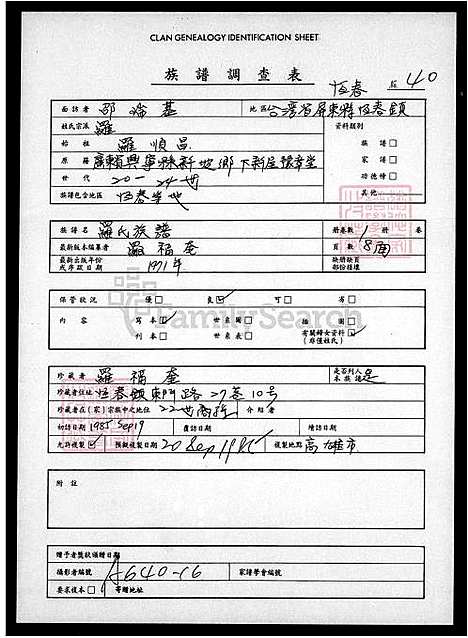 CLAN GENEALOGY IDENTIFICATION SHEET
族譜調查表
恆春 40
面訪者 邵 基 地區 台灣省屏東縣恆春鎮
姓氏宗派 羅 資料類別
始祖 羅順昌 族譜□
原籍 興寧縣 地鄉下 家譜□
世代 20— 24世 功德榜□
族譜包含地區 恆春 地 其他
族譜名 羅氏族譜 冊卷數 1 冊 卷
最新版本編纂者 羅福奎 頁數 18
最新出版年份或序跋日期 1971年 缺冊缺頁部份種類
保管狀況 優□ 良☑ 可□ 劣□
內容 寫本☑ 世系圖□ 插圖□
刊本□ 世系表□ 有關婦女資料☑ (非僅姓氏)
珍藏者 羅福奎 是否列入本族譜 是
珍藏者住址 恆春鎮東門路27巷10号
珍藏者在(家)宗族中之地位 22世 介紹者
初訪日期 1985 Sep 19 覆訪日期 續訪日期
允許複製☑ 預擬複製日期 20 Sep 1985 複製地點 高雄市
FamilySearch
附註
贈予者獎狀頒贈日期
攝影者編號 A640-16 家譜學會編號
要求複本□ 寄贈地址